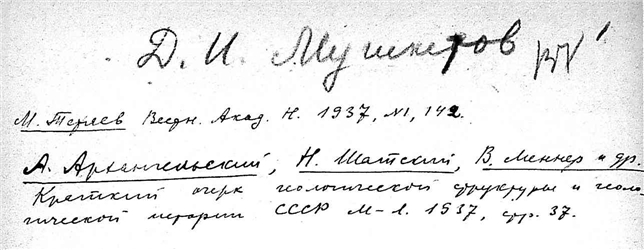 Д. И. Мушкетов
М. Тетяев Вестн. Акад. Н. 1937, №1, 142.
А. Архангельский, Н. Шатский, В. Меннер и др.
Краткий очерк геологической структуры и геоло-
гической истории СССР М-Л. 1937, стр. 37.